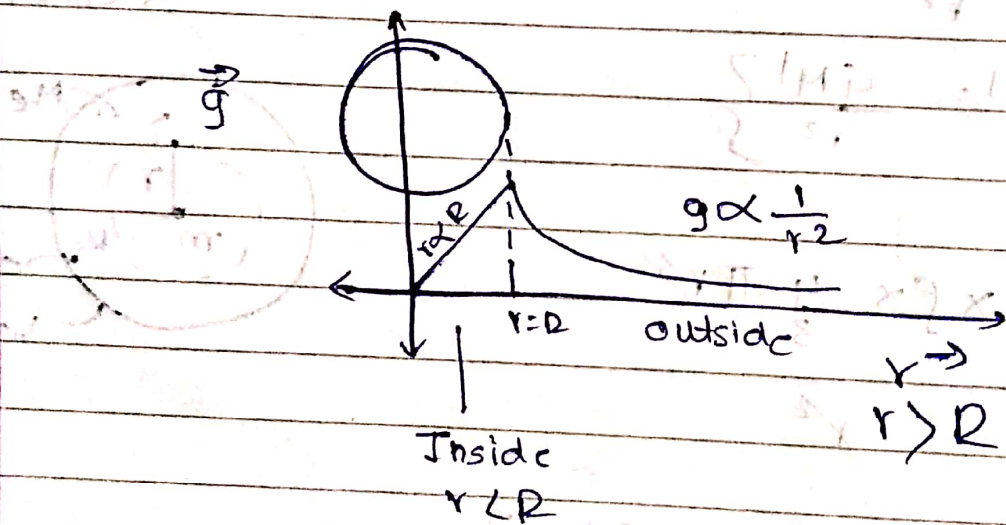 g⃗
r∝R
g∝ 1/r²
r=R
outside
r→
r>R
Inside
r<R